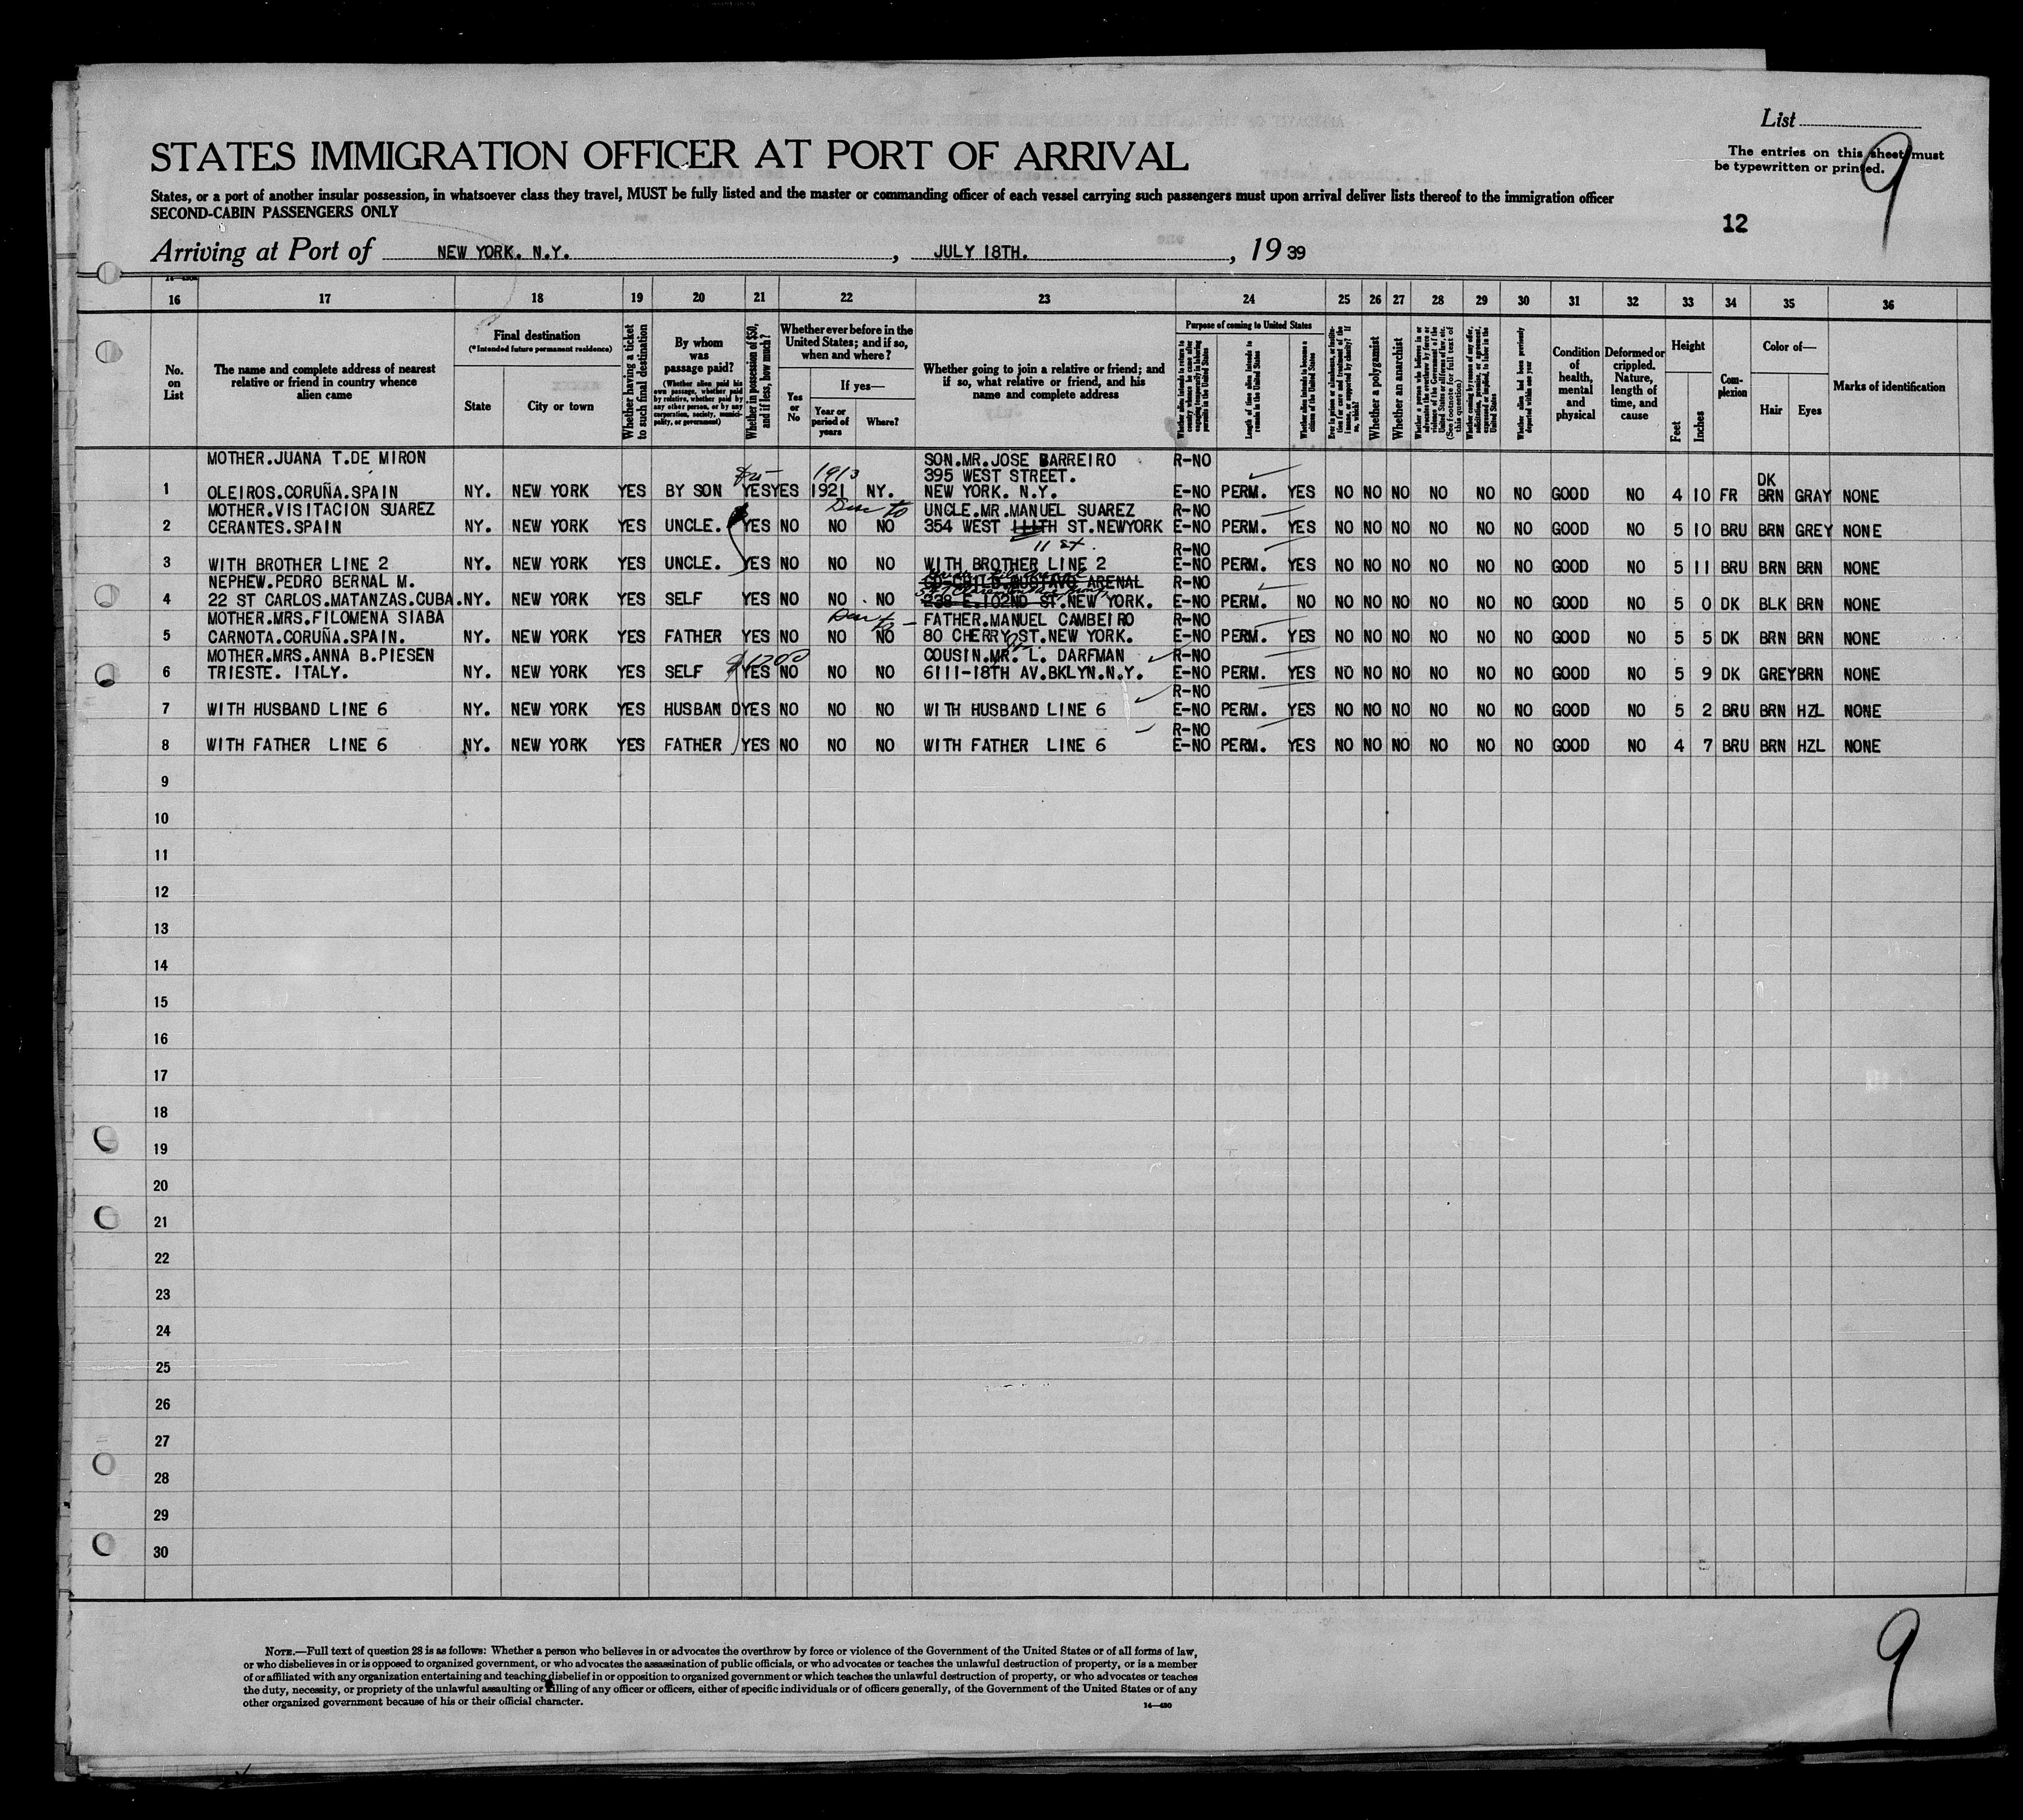 List
STATES IMMIGRATION OFFICER AT PORT OF ARRIVAL
The entries on this sheet must
be typewritten or printed.
9
States, or a port of another insular possession, in whatsoever class they travel, MUST be fully listed and the master or commanding officer of each vessel carrying such passengers must upon arrival deliver lists thereof to the immigration officer
SECOND-CABIN PASSENGERS ONLY
12
Arriving at Port of NEW YORK. N.Y. , JULY 18TH. , 19 39
16 17 18 19 20 21 22 23 24 25 26 27 28 29 30 31 32 33 34 35 36
No. on List
The name and complete address of nearest relative or friend in country whence alien came
Final destination
(*Intended future permanent residence)
State
City or town
Whether having a ticket to such final destination
By whom was passage paid?
(Whether alien paid his own passage, whether paid by relative, whether paid by any other person, or by any corporation, society, municipality, or government)
Whether in possession of $50, and if less, how much?
Whether ever before in the United States; and if so, when and where?
Yes or No
If yes—
Year or period of years
Where?
Whether going to join a relative or friend; and if so, what relative or friend, and his name and complete address
Purpose of coming to United States
Whether alien intends to return to country whence he came after engaging temporarily in laboring pursuits in the United States
Length of time alien intends to remain in the United States
Whether alien intends to become a citizen of the United States
Whether a polygamist
Whether an anarchist
Condition of health, mental and physical
Deformed or crippled. Nature, length of time, and cause
Height
Feet
Inches
Complexion
Color of—
Hair
Eyes
Marks of identification
MOTHER.JUANA T.DE MIRON SON.MR.JOSE BARREIRO R-NO
1913 395 WEST STREET. DK
1 OLEIROS.CORUÑA.SPAIN NY. NEW YORK YES BY SON YES YES 1921 NY. NEW YORK. N.Y. E-NO PERM. YES NO NO NO NO NO NO GOOD NO 4 10 FR BRN GRAY NONE
MOTHER.VISITACION SUAREZ UNCLE.MR.MANUEL SUAREZ R-NO
2 CERANTES.SPAIN NY. NEW YORK YES UNCLE. YES NO NO NO 354 WEST 111TH ST.NEWYORK E-NO PERM. YES NO NO NO NO NO NO GOOD NO 5 10 BRU BRN GREY NONE
11 st. R-NO
3 WITH BROTHER LINE 2 NY. NEW YORK YES UNCLE. YES NO NO NO WITH BROTHER LINE 2 E-NO PERM. YES NO NO NO NO NO NO GOOD NO 5 11 BRU BRN BRN NONE
NEPHEW.PEDRO BERNAL M. GUSTAVO ARENAL R-NO
4 22 ST CARLOS.MATANZAS.CUBA. NY. NEW YORK YES SELF YES NO NO NO 238 E.102ND ST.NEW YORK. E-NO PERM. NO NO NO NO NO NO NO GOOD NO 5 0 DK BLK BRN NONE
MOTHER.MRS.FILOMENA SIABA FATHER.MANUEL CAMBEIRO R-NO
5 CARNOTA.CORUÑA.SPAIN. NY. NEW YORK YES FATHER YES NO NO NO 80 CHERRY ST.NEW YORK. E-NO PERM. YES NO NO NO NO NO NO GOOD NO 5 5 DK BRN BRN NONE
MOTHER.MRS.ANNA B.PIESEN COUSIN.MR. L. DARFMAN R-NO
6 TRIESTE. ITALY. NY. NEW YORK YES SELF YES NO NO NO 6111-18TH AV.BKLYN.N.Y. E-NO PERM. YES NO NO NO NO NO NO GOOD NO 5 9 DK GREY BRN NONE
R-NO
7 WITH HUSBAND LINE 6 NY. NEW YORK YES HUSBAN D YES NO NO NO WITH HUSBAND LINE 6 E-NO PERM. YES NO NO NO NO NO NO GOOD NO 5 2 BRU BRN HZL NONE
R-NO
8 WITH FATHER LINE 6 NY. NEW YORK YES FATHER YES NO NO NO WITH FATHER LINE 6 E-NO PERM. YES NO NO NO NO NO NO GOOD NO 4 7 BRU BRN HZL NONE
9
10
11
12
13
14
15
16
17
18
19
20
21
22
23
24
25
26
27
28
29
30
NOTE.—Full text of question 28 is as follows: Whether a person who believes in or advocates the overthrow by force or violence of the Government of the United States or of all forms of law,
or who disbelieves in or is opposed to organized government, or who advocates the assassination of public officials, or who advocates or teaches the unlawful destruction of property, or is a member
of or affiliated with any organization entertaining and teaching disbelief in or opposition to organized government or which teaches the unlawful destruction of property, or who advocates or teaches
the duty, necessity, or propriety of the unlawful assaulting or killing of any officer or officers, either of specific individuals or of officers generally, of the Government of the United States or of any
other organized government because of his or their official character.
14—480
9